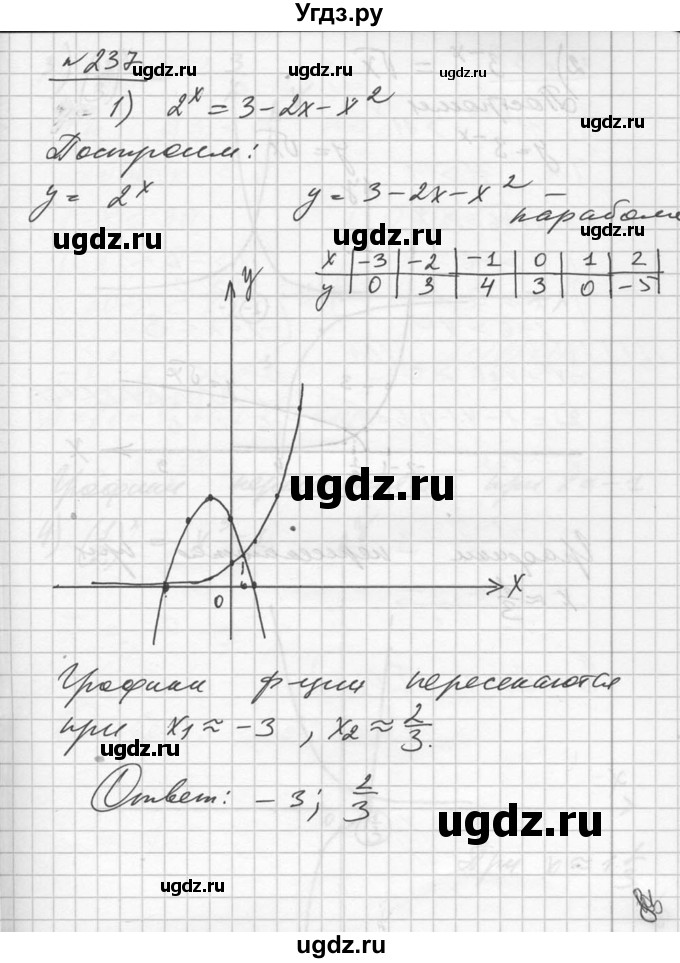 Угдз.ру
№237
1) 2^x = 3 - 2x - x^2
Построим:
y = 2^x y = 3 - 2x - x^2 – парабола
x | -3 | -2 | -1 | 0 | 1 | 2
y | 0 | 3 | 4 | 3 | 0 | -5
y
x
0
Графики ф-ции пересекаются
при x₁ ≈ -3, x₂ ≈ 2/3.
Ответ: -3; 2/3
ugdz.ru
ugdz.ru
ugdz.ru
ugdz.ru
ugdz.ru
ugdz.ru
ugdz.ru
ugdz.ru
ugdz.ru
ugdz.ru
ugdz.ru
ugdz.ru
ugdz.ru